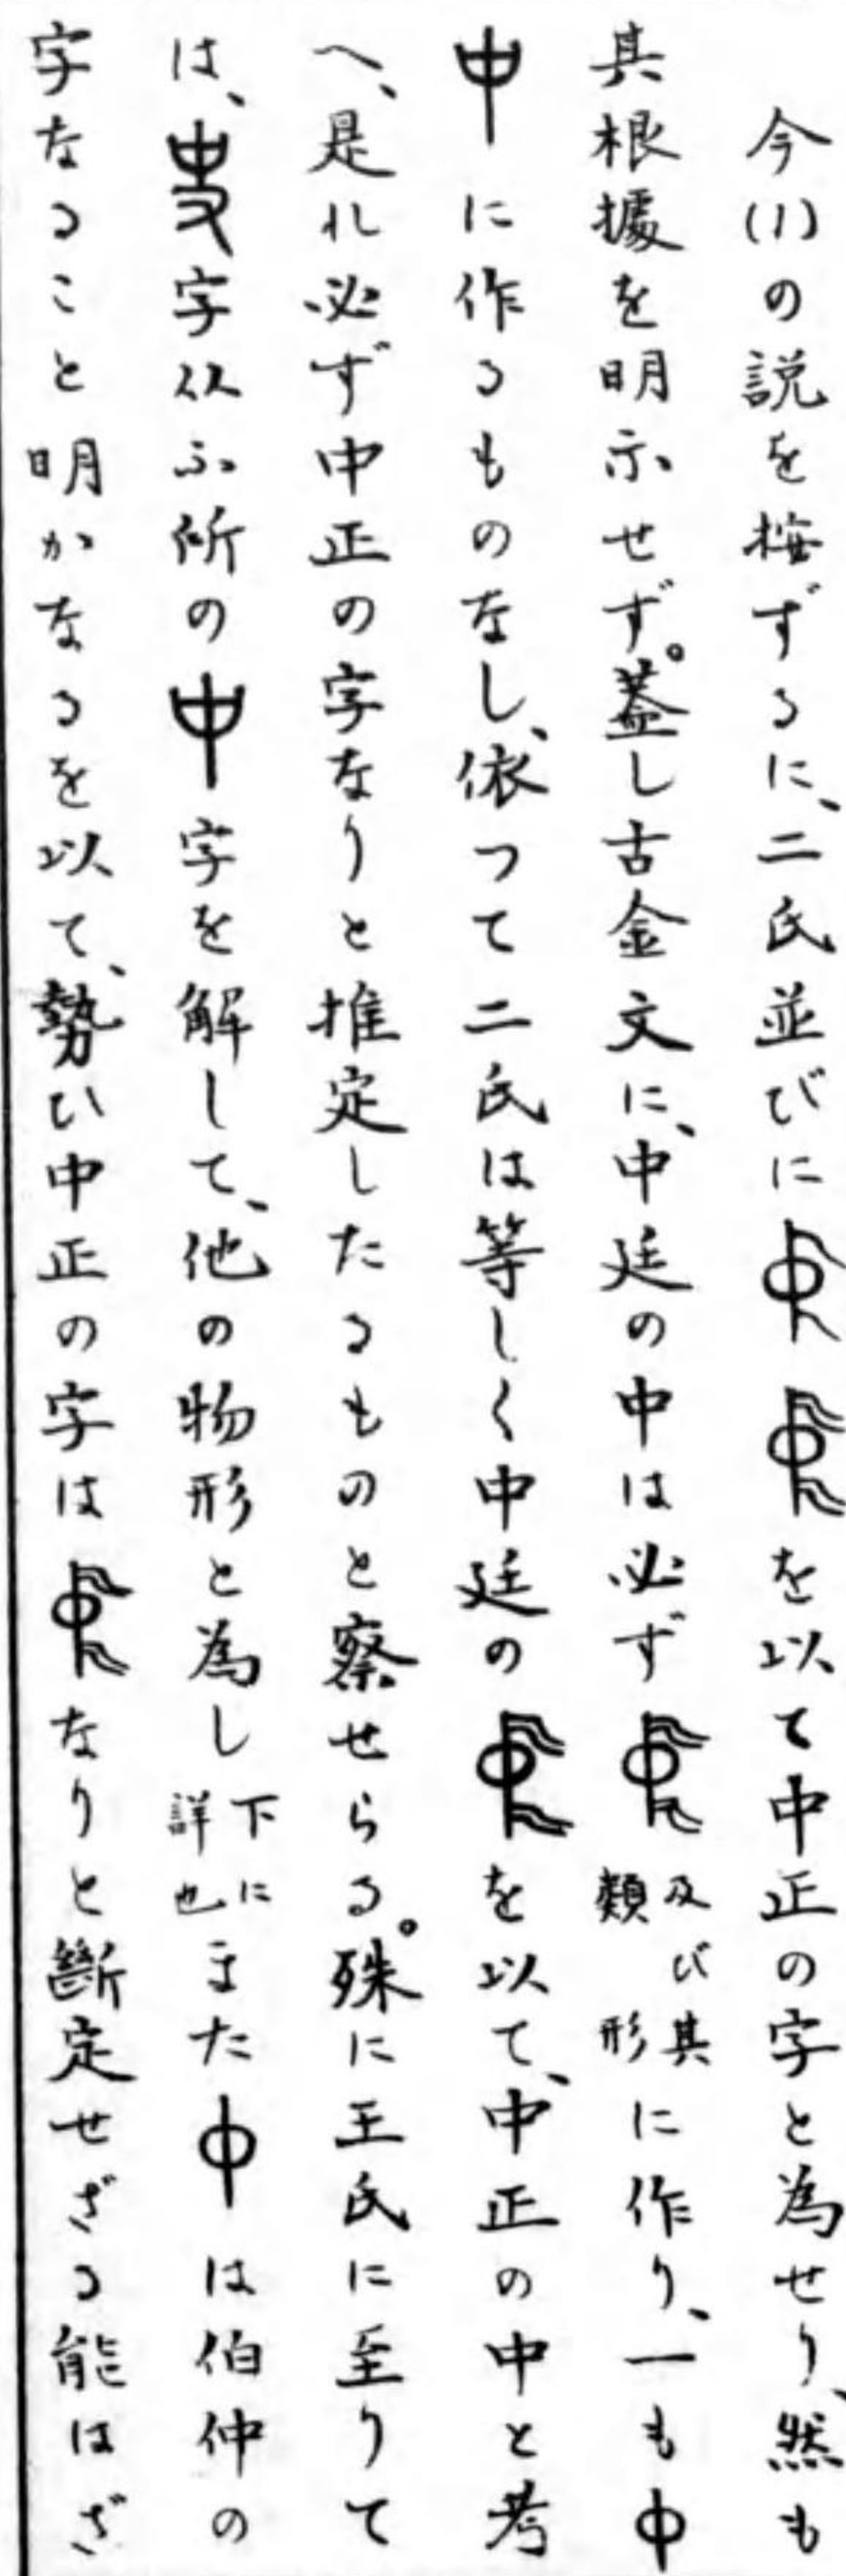 今(1)の説を按ずるに、二氏並びにを以て中正の字と為せり、然も
其根據を明示せず。蓋し古金文に、中廷の中は必ず及び其類形に作り、一も中
中に作るものなし、依つて二氏は等しく中廷のを以て、中正の中と考
へ、是れ必ず中正の字なりと推定したるものと察せらる。殊に王氏に至りて
は、字从ふ所の中字を解して、他の物形と為し下に詳也また中は伯仲の
字なること明かなるを以て、勢ひ中正の字はなりと斷定せざる能はざ